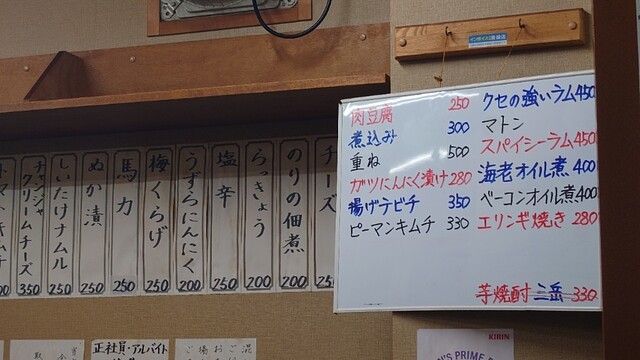 インボイス
肉豆腐 250
煮込み 300
重ね 500
ガツにんにく漬け 280
揚げテビチ 350
ピーマンキムチ 330
クセの強いラム 450
マトン
スパイシーラム 450
海老オイル煮 400
ベーコンオイル煮 400
エリンギ焼き 280
芋焼酎 三岳 330
チーズ 25
のりの佃煮 200
らっきょう 200
塩辛 250
うずらにんにく 200
梅くらげ 250
馬力 250
ぬか漬 250
しいたけナムル 250
チャンジャ
クリームチーズ 350
正社員・アルバイト
KIRIN